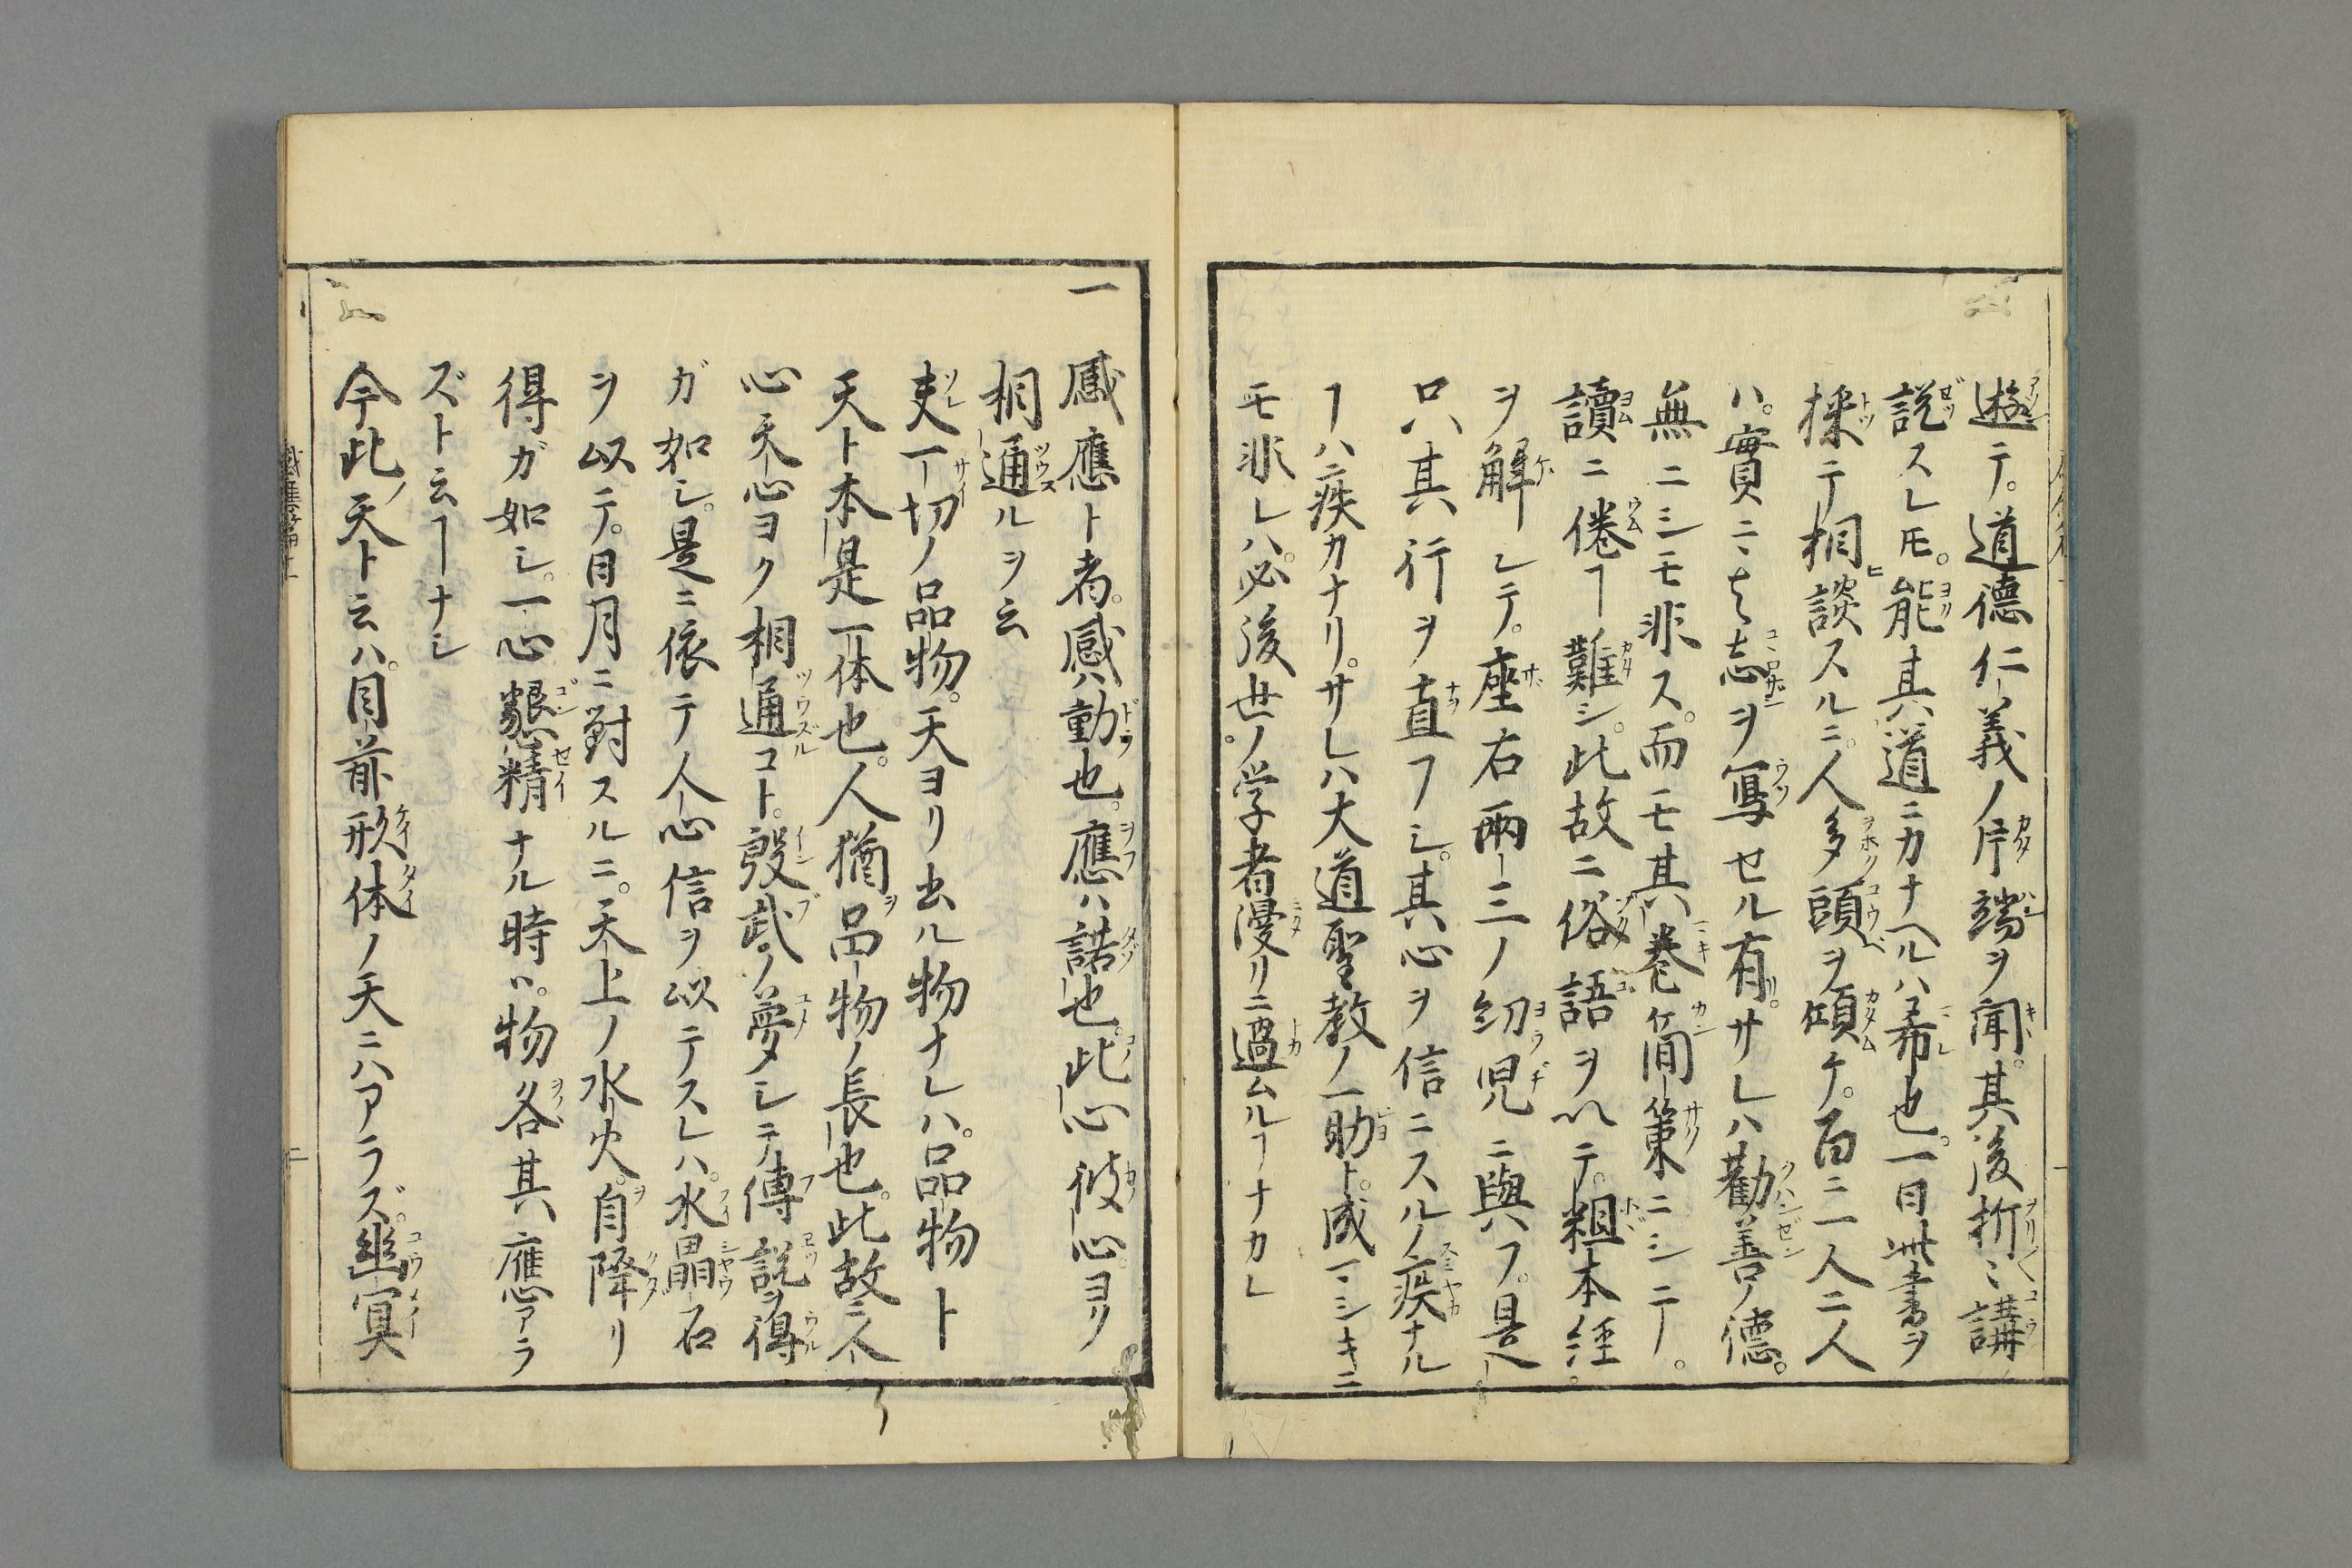 遊テ。道德仁義ノ片端ヲ聞。其後折〻講
説スレ𪜈。能其道ニカナヘルハ希也。一日此書ヲ
採テ相談スルニ。人多頭ヲ傾ケ。百ニ一人二人
ハ。實ニ〻志ヲ寫セル有。サレハ勸善ノ德。
無ニシモ非ス。而モ其巻簡策ニシテ。
讀ニ倦ヿ難シ。此故ニ俗語ヲ以テ。粗本経
ヲ解シテ。座右兩三ノ幼児ニ與フ。是
只其行ヲ直フシ。其心ヲ信ニスルノ疾ナル
ヿハ疾カナリ。サレハ大道聖教ノ一助ト。成マシキニ
モ非レハ。必後世ノ学者漫リニ過ムルヿナカレ
一 感應ト者。感ハ動也。應ハ諾也。此心彼心ヨリ
相通ルヲ云
夫一切ノ品物。天ヨリ出ル物ナレハ。品物ト
天ト本是一体也。人猶品物ノ長也。此故ニ人
心天心ヨク相通コト。殷武ノ夢シテ傅説ヲ得
ガ如シ。是ニ依テ人心信ヲ以テスレハ。水晶石
ヲ以テ。日月ニ對スルニ。天上ノ水火。自降リ
得ガ如シ。一心懇精ナル時ハ。物各其應アラ
ズト云ヿナシ
今此ノ天ト云ハ。目前形体ノ天ニハアラズ。幽冥
二